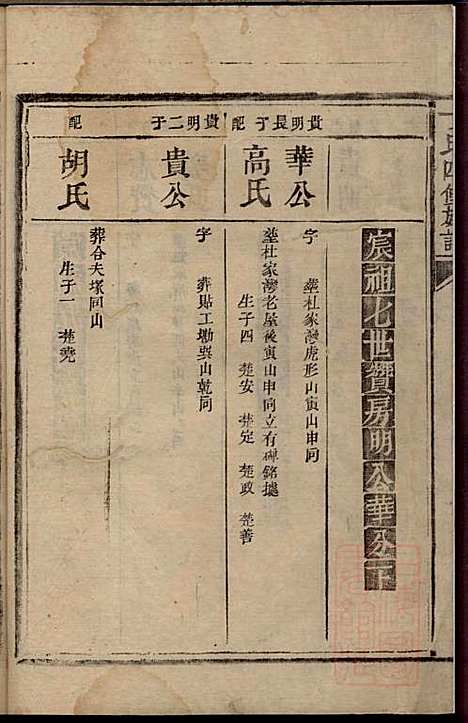 氏四修族譜
宸祖七世贊房明公華公一下
貴明長子 配
華公
高氏
字 塟杜家灣虎形山寅山申向
塟杜家灣老屋後寅山申向立有碑銘據
生子四 楚安 楚定 楚政 楚善
貴明二子 配
貴公
胡氏
字 葬貼工塝巽山乾向
葬合夫塚同山
生子一 楚堯